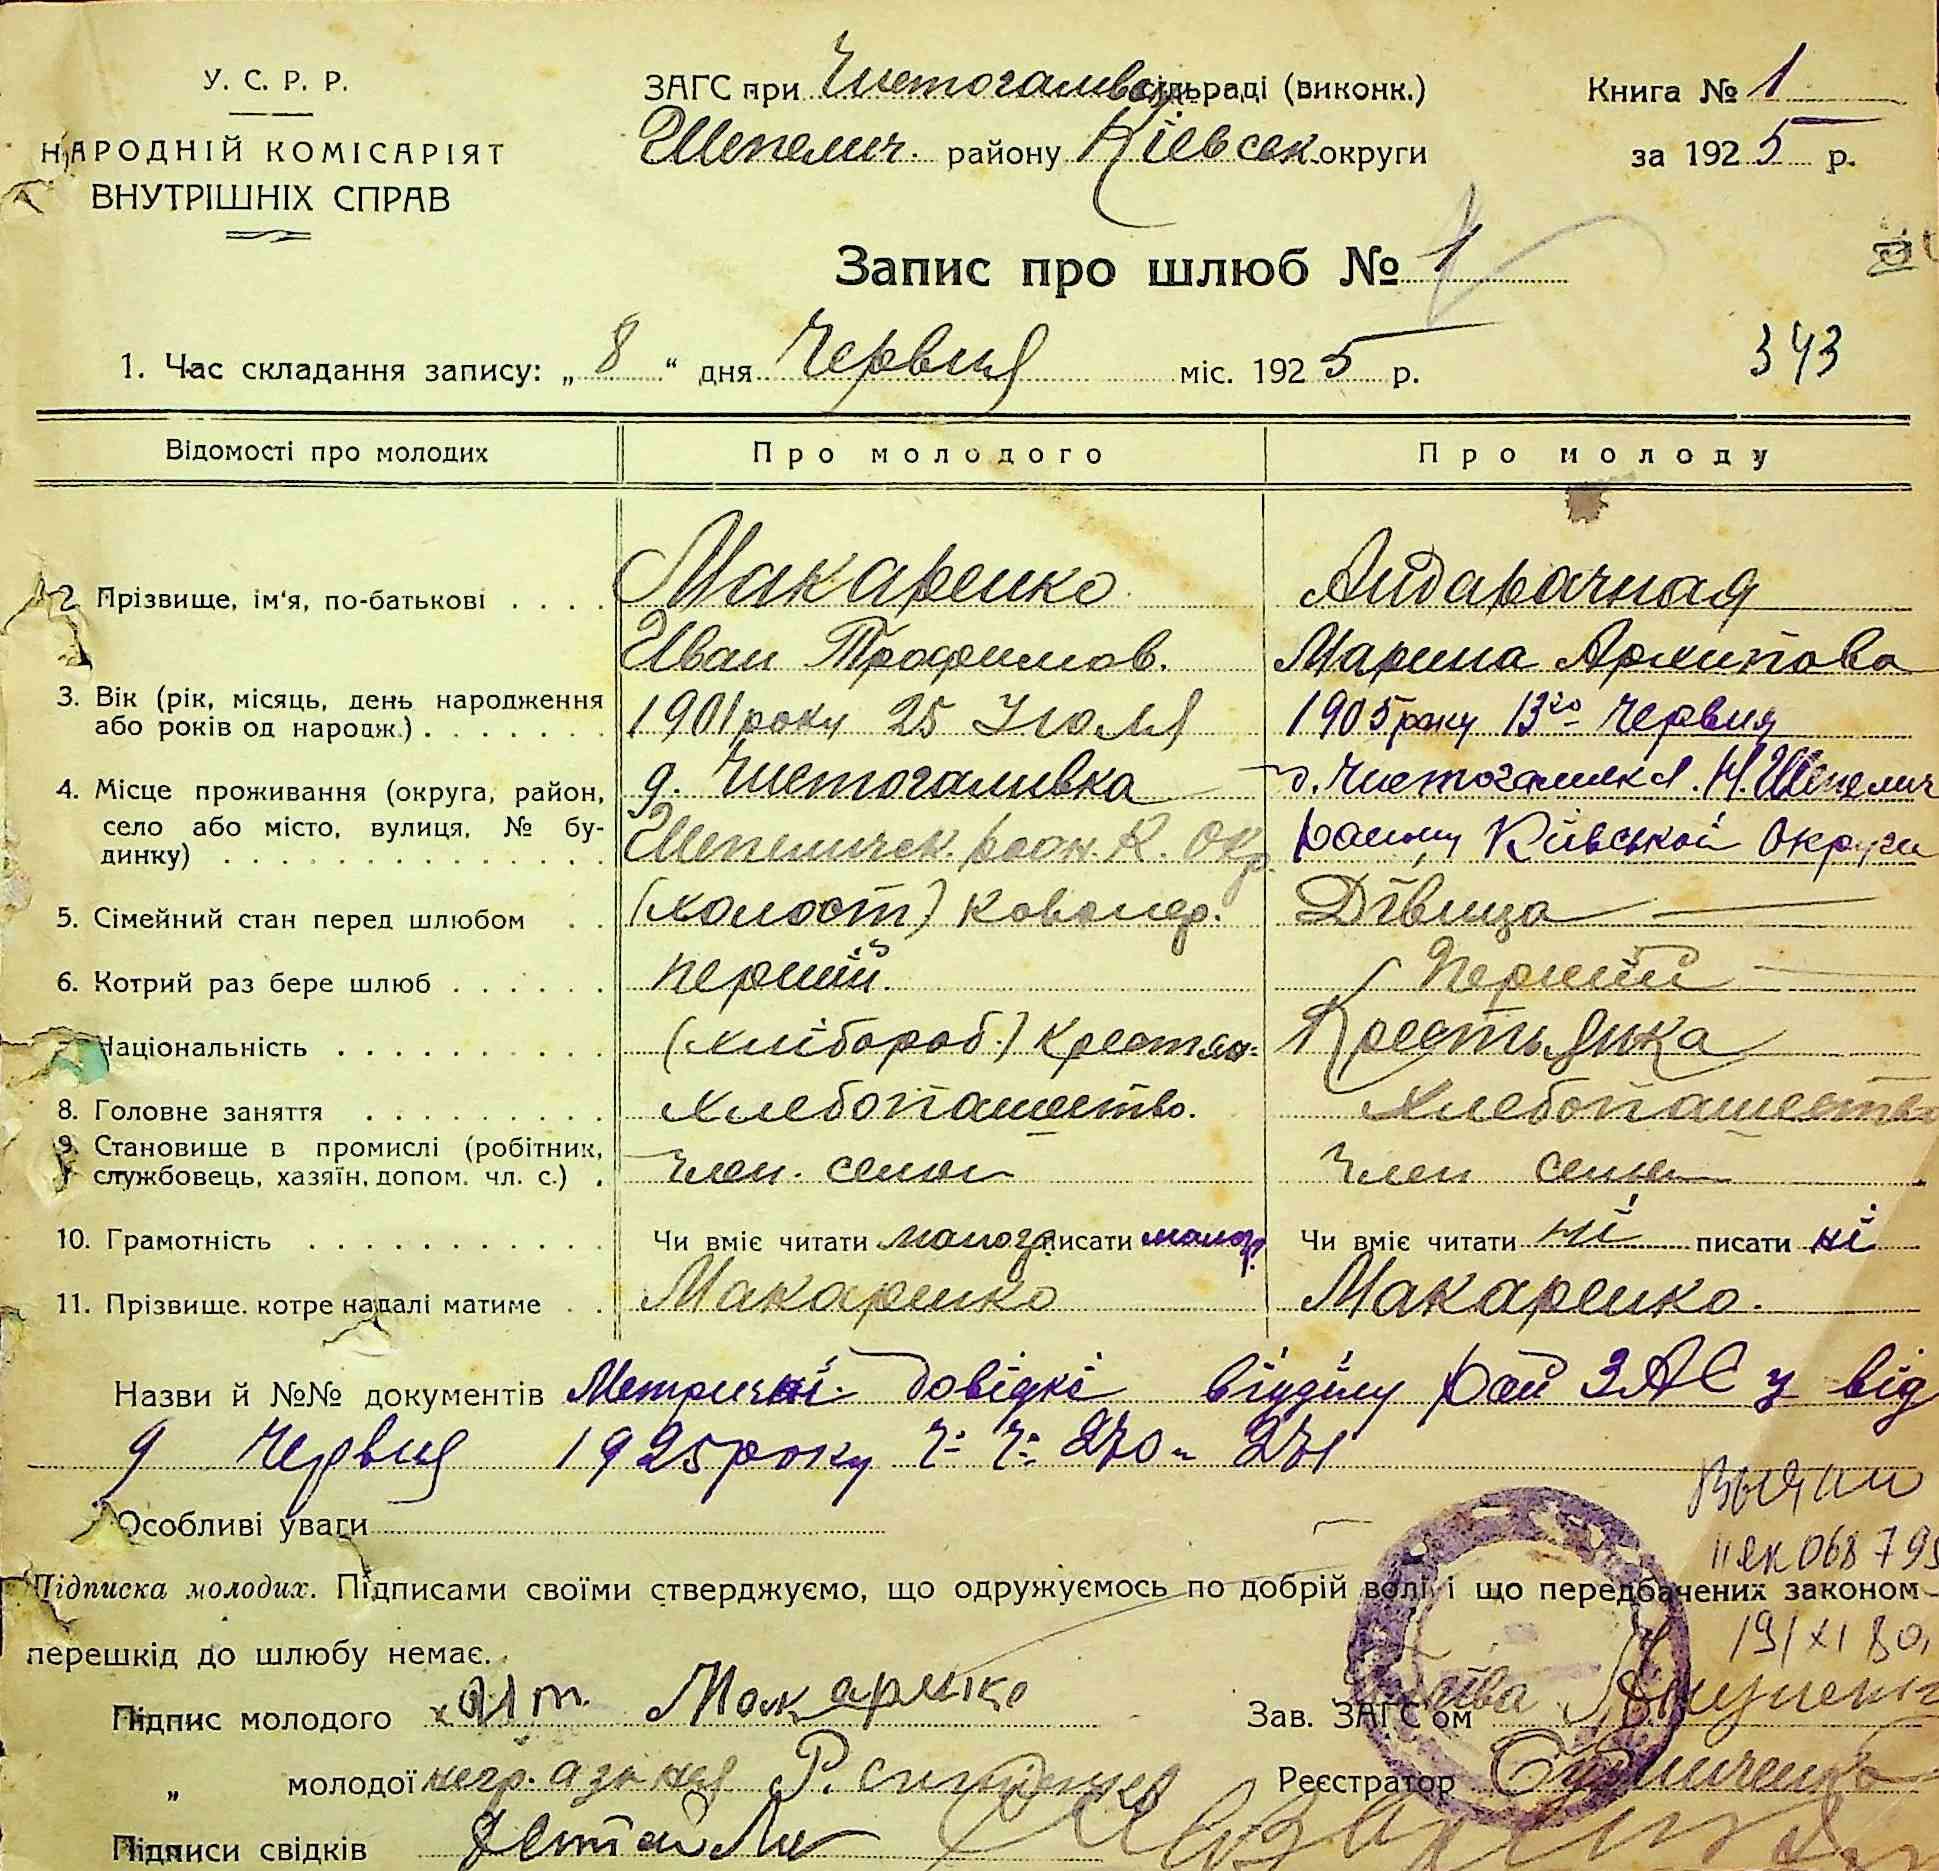 У. С. Р. Р.
НАРОДНІЙ КОМІСАРІЯТ
ВНУТРІШНІХ СПРАВ
ЗАГС при Чистогаливск сільраді (виконк.)
Шепелич. району Кіевск округи
Книга № 1
за 1925 р.
Запис про шлюб № 1
1. Час складання запису: „ 8 “ дня Червня міс. 1925 р.
343
Відомості про молодих Про молодого Про молоду
2. Прізвище, ім'я, по-батькові . . . . Макаренко Андарачная
Иван Трофимов. Марина Архипова
3. Вік (рік, місяць, день народження 1901 року 25 Июля 1905 року 13го Червня
або років од народж.) . . . . . . .
4. Місце проживання (округа, район, д. Чистогаливка с. Чистогаливка. Н. Шепелич
село або місто, вулиця, № бу- Шепеличск. раон. К. Окр. району Київськой Округи
динку) . . . . . . . . . . . . . .
5. Сімейний стан перед шлюбом . . (холост) Дівица
6. Котрий раз бере шлюб . . . . . . перший. Перший
7. Національність . . . . . . . . . . (хлібороб.) Крестян- Крестьянка
8. Головне заняття . . . . . . . . . хлебопашество. хлебопашество
9. Становище в промислі (робітник, член. семи Член семи
службовець, хазяїн, допом. чл. с.) .
10. Грамотність . . . . . . . . . . . Чи вміє читати малогр. писати малогр. Чи вміє читати ні писати ні
11. Прізвище, котре надалі матиме . . Макаренко Макаренко.
Назви й №№ документів Метричні довідкі відділу Рай ЗАГСу від
9 Червня 1925 року ч. ч. 270 и 271
Выдан
Особливі уваги
II ЯК 068 795
Підписка молодих. Підписами своїми стверджуємо, що одружуємось по добрій волі і що передбачених законом
перешкід до шлюбу немає.
19/XI 80
Підпис молодого Макаренко Зав. ЗАГС'ом
„ молодої негр. а за нея Р. Реєстратор
Підписи свідків